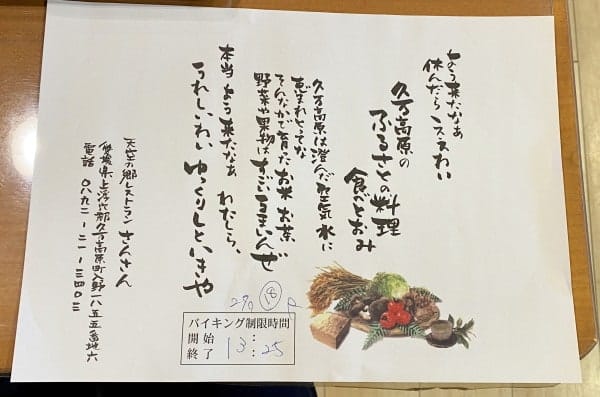 よう来たなあ
休んだらエエわい
久万高原の
ふるさとの料理
食べとおみ
久万高原は澄んだ空気 水に
恵まれとってな
そんなかで育ったお米 お茶
野菜や果物は すごいうまいんぜ
本当 よう来たなぁ わたしら、
うれしいわい ゆっくりしといきや
天空の郷レストラン さんさん
愛媛県上浮穴郡久万高原町入野一八五五番地六
電話 〇八九二-二一-三四〇三
18
バイキング制限時間
開始 :
終了 13:25